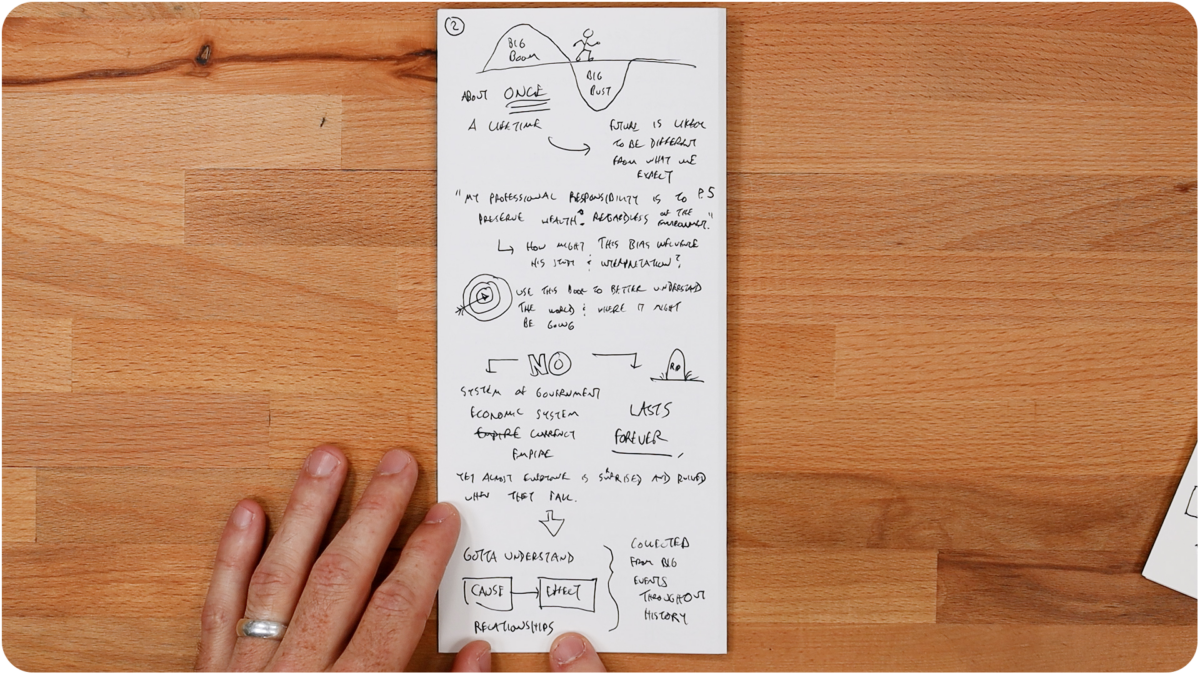 2
BIG
BOOM
BIG
BUST
ABOUT ONCE
A LIFETIME
FUTURE IS LIKELY
TO BE DIFFERENT
FROM WHAT WE
EXPECT
"MY PROFESSIONAL RESPONSIBILITY IS TO P.5
PRESERVE WEALTH REGARDLESS OF THE
ENVIRONMENT."
HOW MIGHT THIS BIAS INFLUENCE
HIS STUDY & INTERPRETATION?
USE THIS BOOK TO BETTER UNDERSTAND
THE WORLD & WHERE IT MIGHT
BE GOING
NO
RIP
SYSTEM OF GOVERNMENT
ECONOMIC SYSTEM
EMPIRE CURRENCY
EMPIRE
LASTS
FOREVER
YET ALMOST EVERYONE IS SURPRISED AND RUINED
WHEN THEY FALL.
GOTTA UNDERSTAND
CAUSE EFFECT
RELATIONSHIPS
COLLECTED
FROM BIG
EVENTS
THROUGHOUT
HISTORY